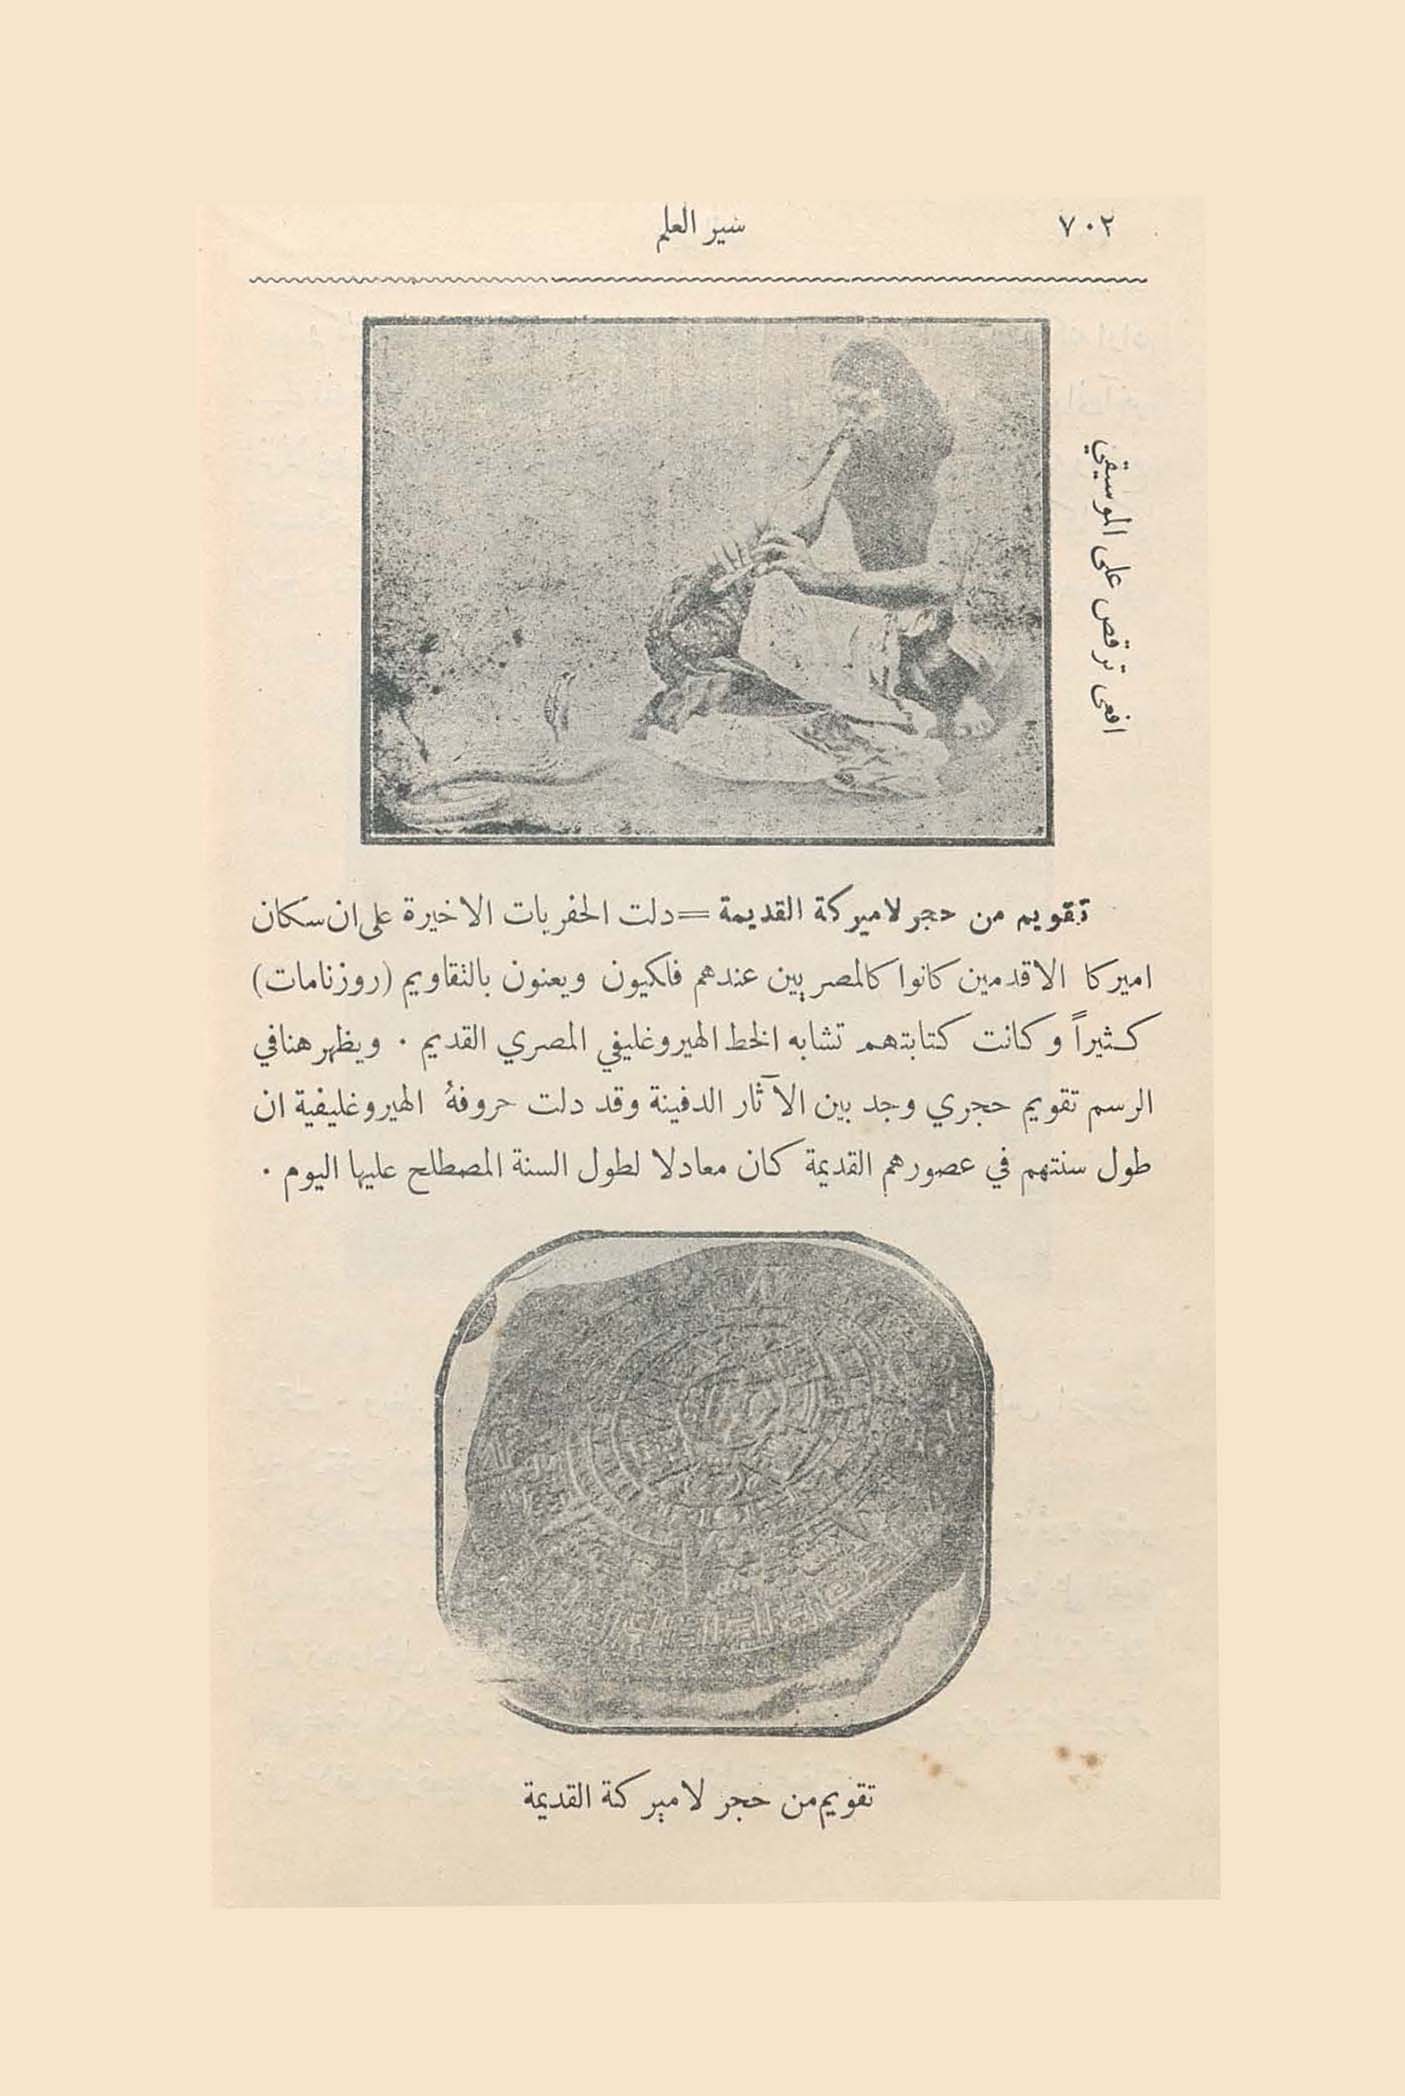 ٧٠٢
سير العلم
افعى ترقص على الموسيقي
تقويم من حجر لاميركة القديمة = دلت الحفريات الاخيرة على ان سكان
اميركا الاقدمين كانوا كالمصريين عندهم فلكيون ويعنون بالتقاويم (روزنامات)
كثيراً وكانت كتابتهم تشابه الخط الهيروغليفي المصري القديم . ويظهر هنا في
الرسم تقويم حجري وجد بين الآثار الدفينة وقد دلت حروفهُ الهيروغليفية ان
طول سنتهم في عصورهم القديمة كان معادلا لطول السنة المصطلح عليها اليوم .
تقويم من حجر لاميركة القديمة